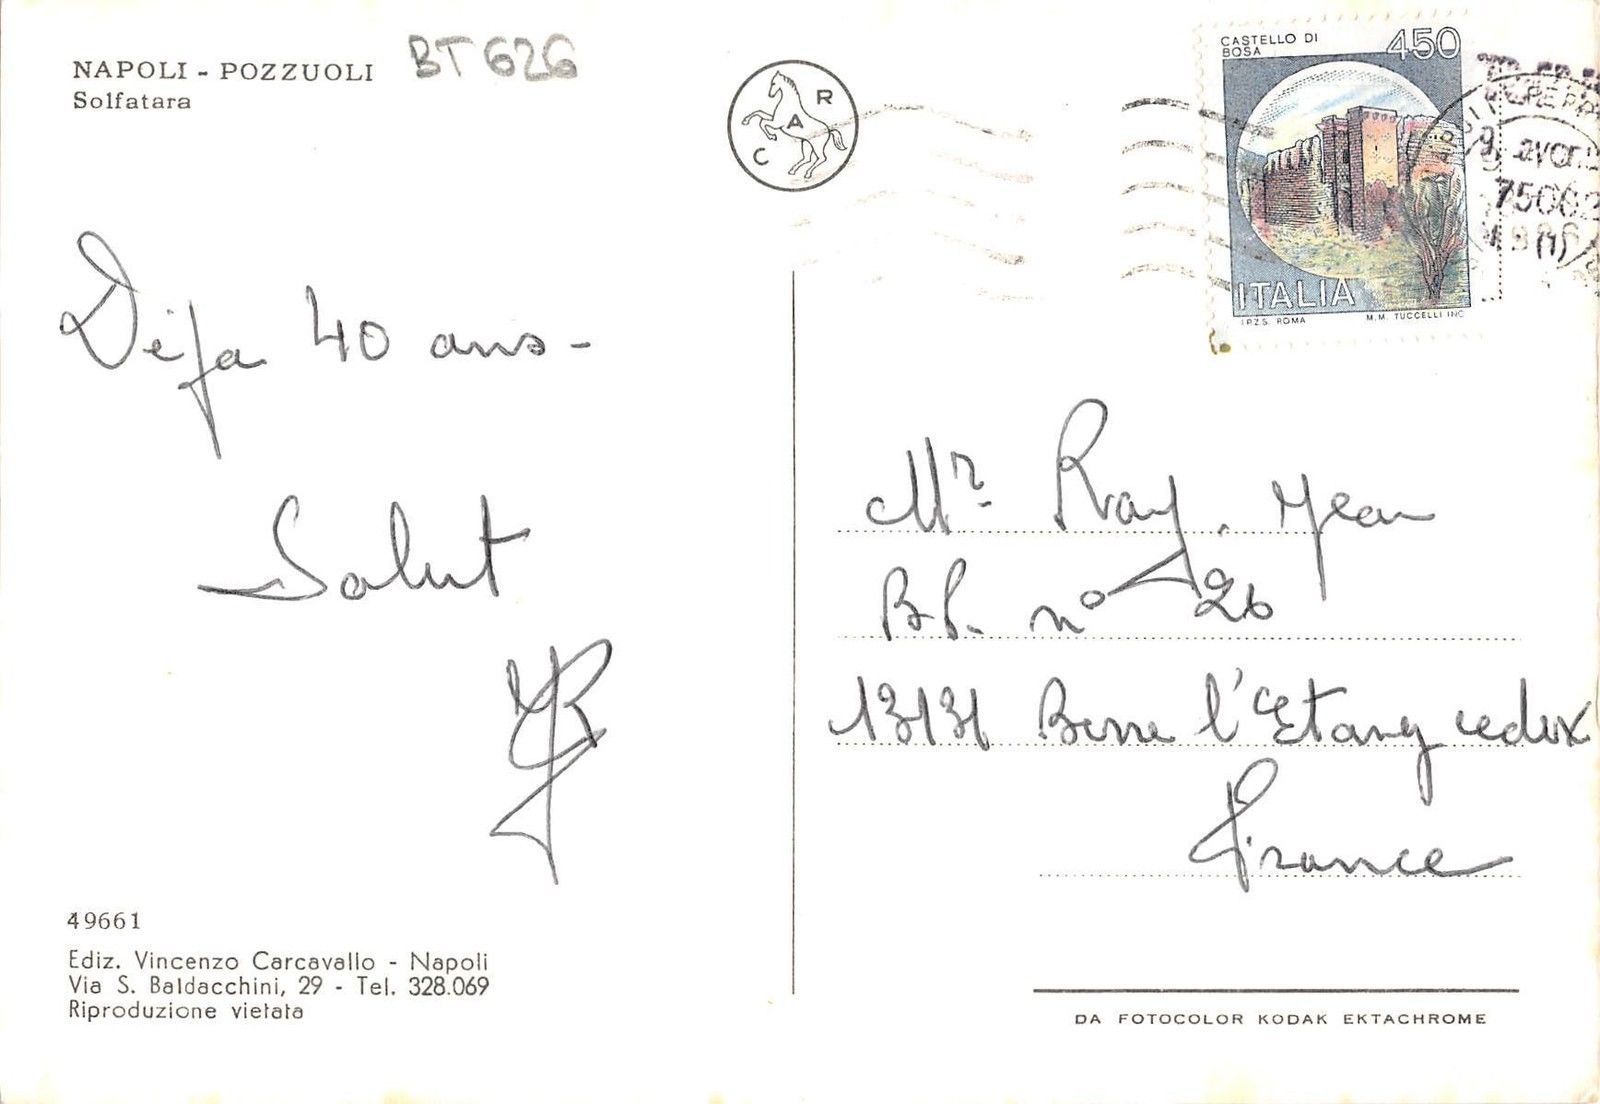 NAPOLI - POZZUOLI
Solfatara
BT 626
C A R
CASTELLO DI
BOSA
450
ITALIA
I.P.Z.S. ROMA
M.M. TUCCELLI INC.
Déja 40 ans -
Salut
Mr. Ray. Jean
BP. n° 26
13131 Berre l'Etang cedex
France
49661
Ediz. Vincenzo Carcavallo - Napoli
Via S. Baldacchini, 29 - Tel. 328.069
Riproduzione vietata
DA FOTOCOLOR KODAK EKTACHROME